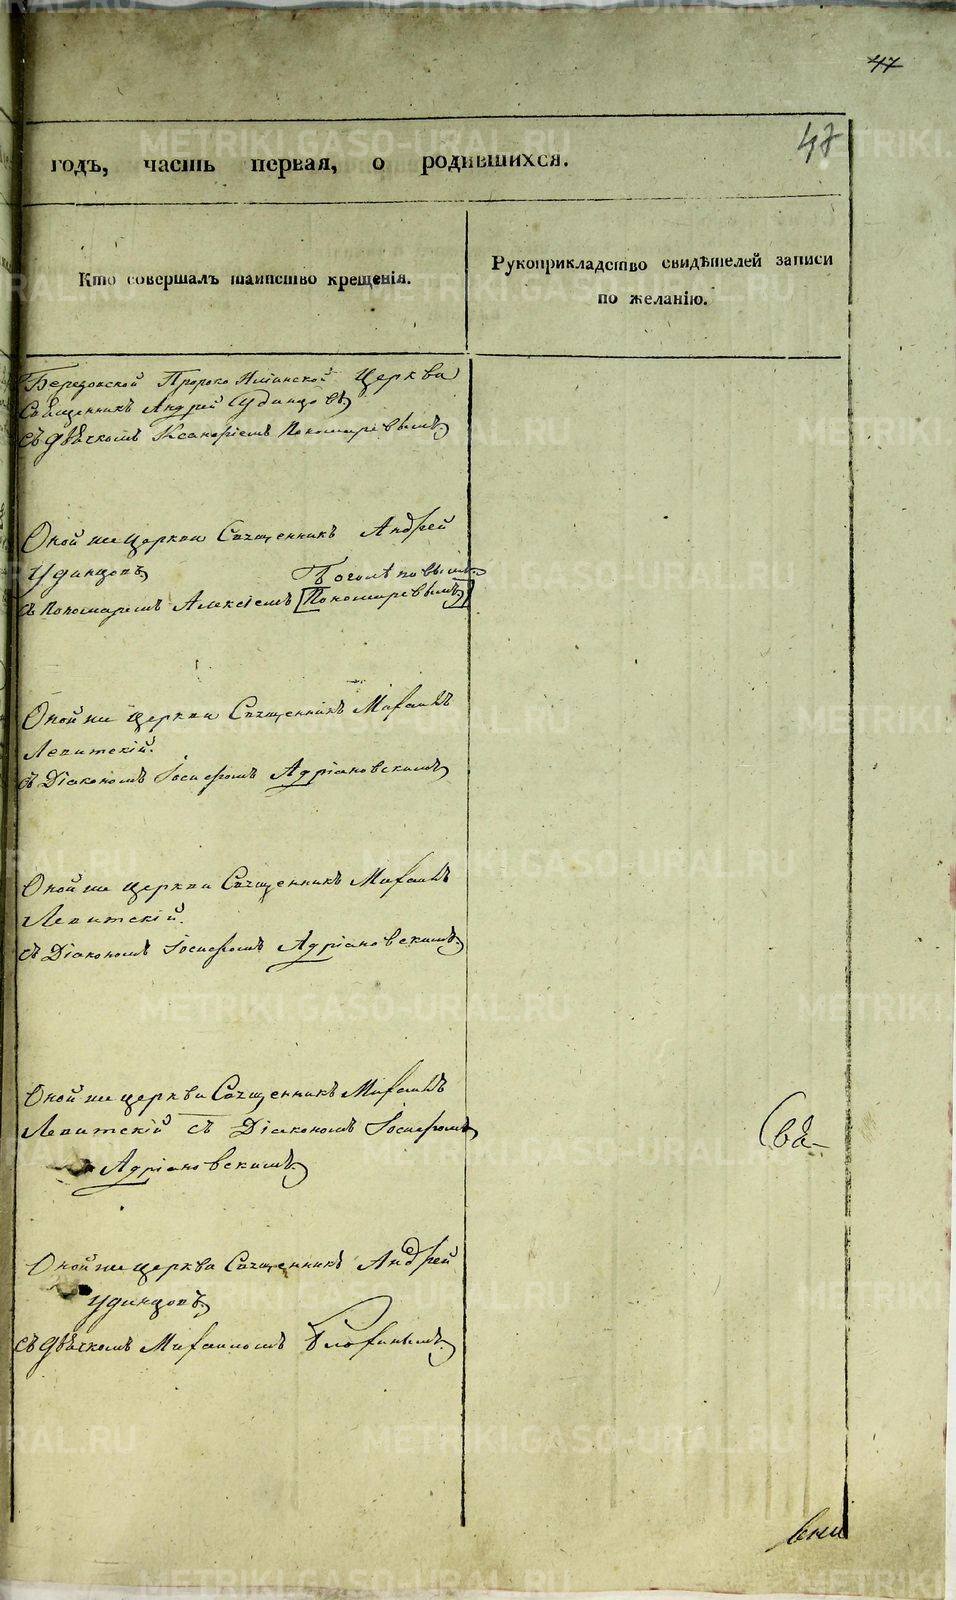 47
47
годъ, часть первая, о родившихся.
Кто совершалъ таинство крещенія.
Рукоприкладство свидѣтелей записи
по желанію.
Березовской Пророко Илiинской Церкви
Священникъ Андрей Удинцовъ
съ дьячкомъ Пономаревымъ
Оной же церкви Священникъ Андрей
Удинцовъ
съ Пономаремъ Алексiемъ [Пономаревымъ]
Оной же церкви Священникъ Михаилъ
Левитскiй.
съ Дiакономъ Iосифомъ Адрiановскимъ
Оной же церкви Священникъ Михаилъ
Левитскiй.
съ Дiакономъ Iосифомъ Адрiановскимъ
Оной же церкви Священникъ Михаилъ
Левитскiй съ Дiакономъ Iосифомъ
Адрiановскимъ
Свя-
Оной же церкви Священникъ Андрей
Удинцовъ
съ дьячкомъ Михаиломъ
METRIKI.GASO-URAL.RU